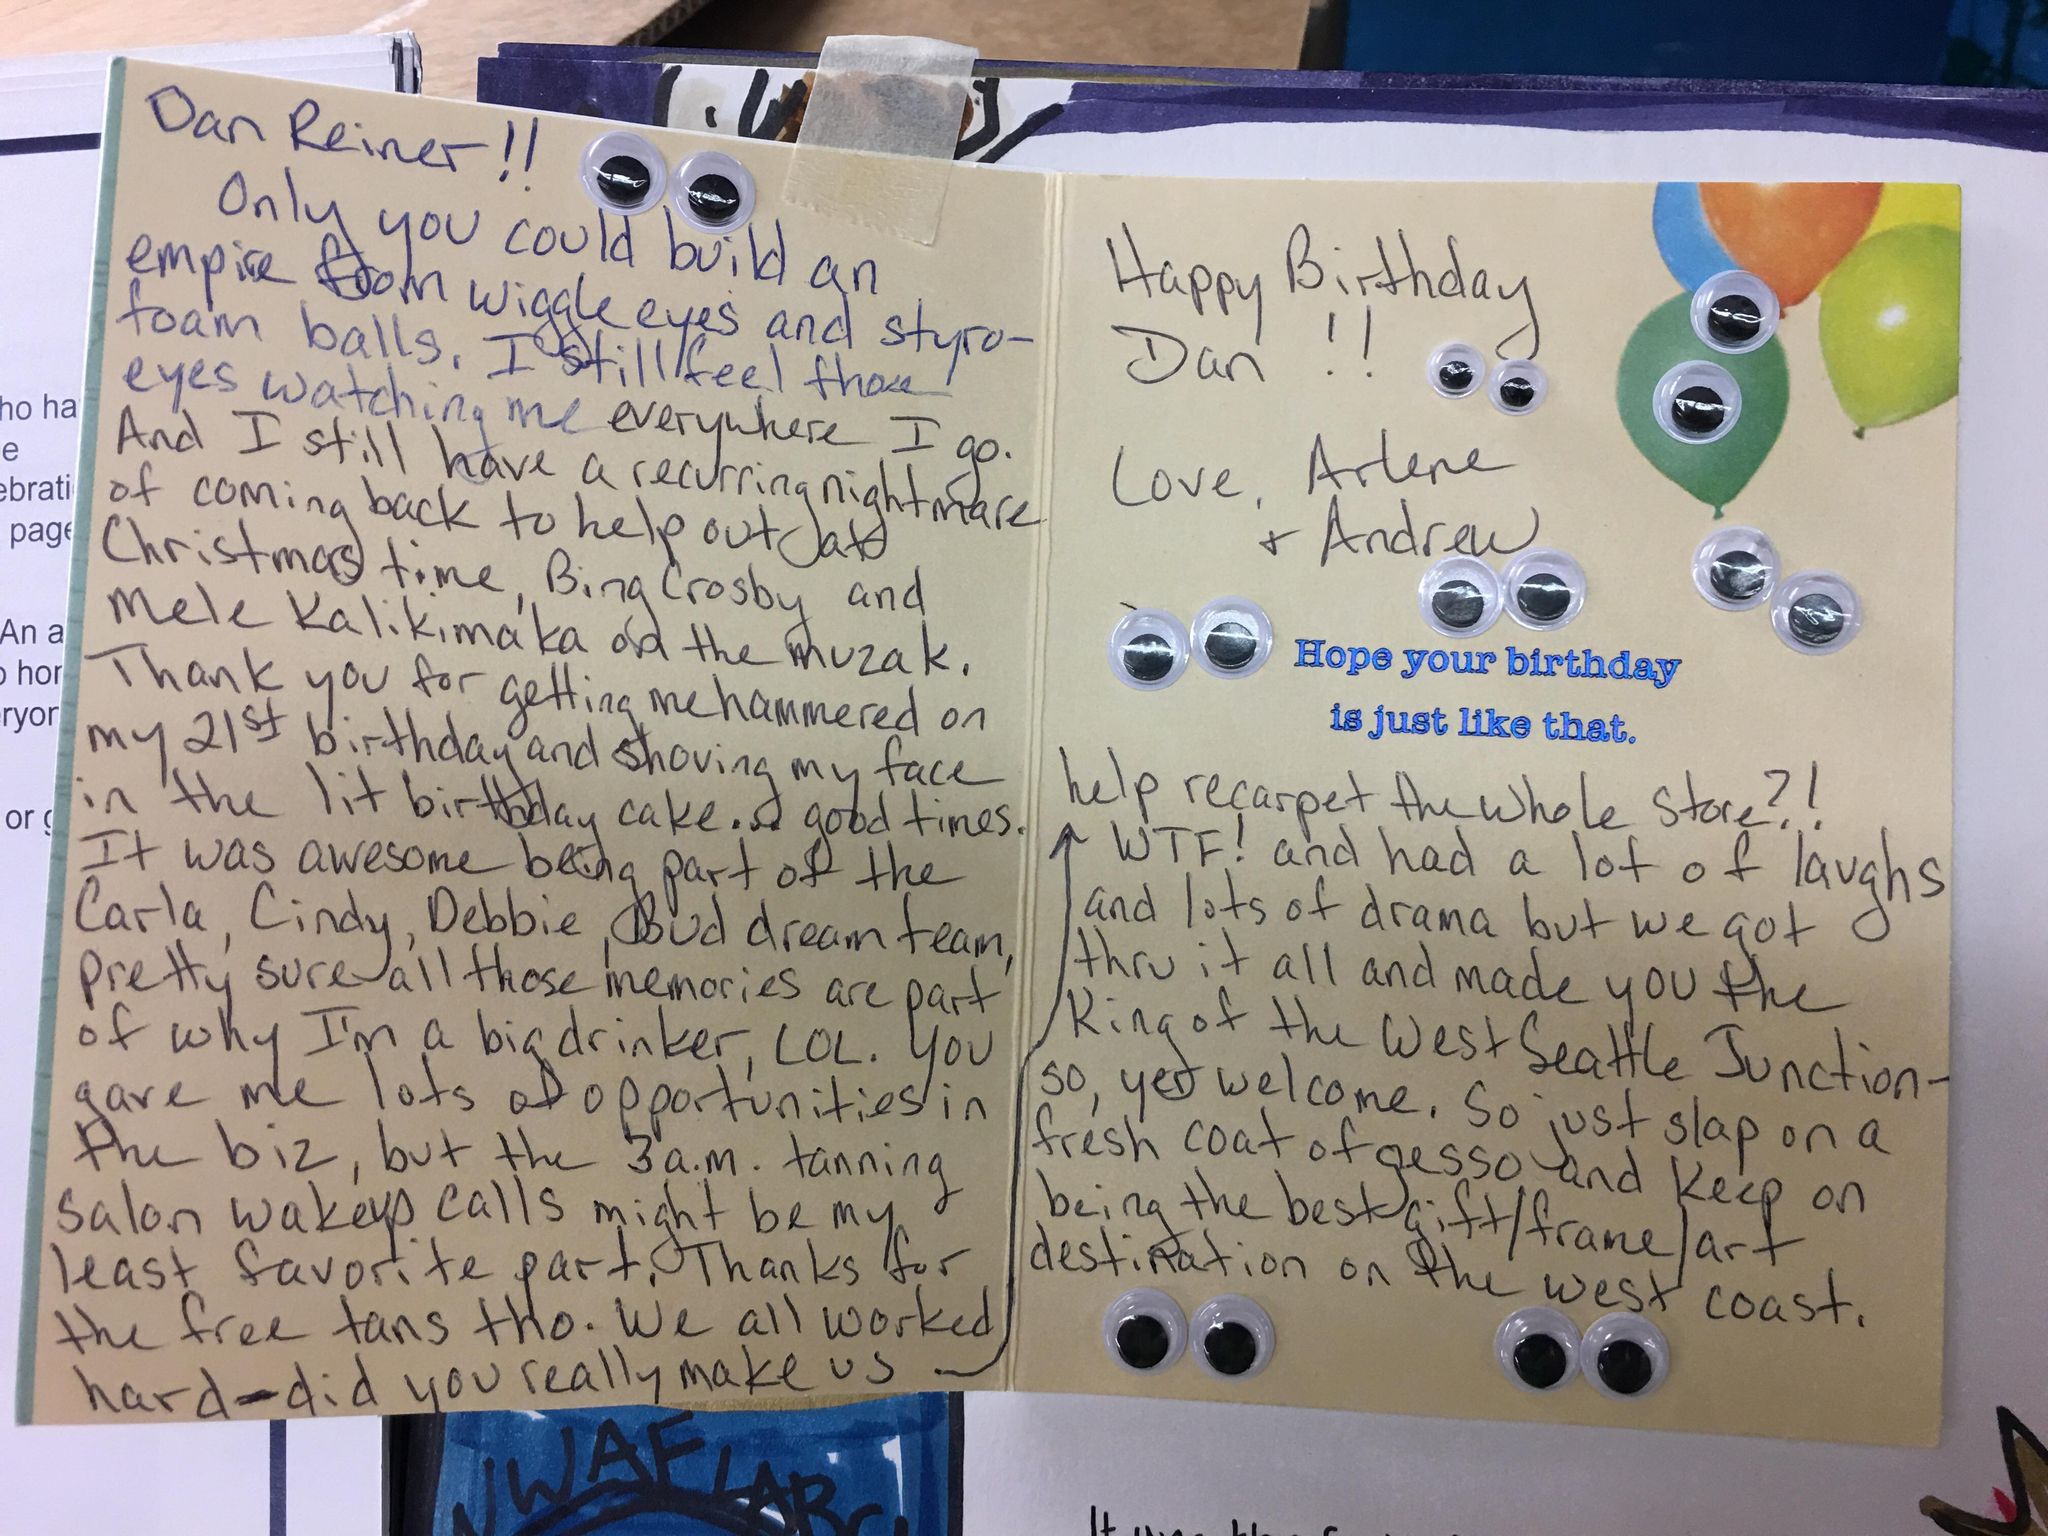 Dan Reiner!!
Only you could build an
empire from wiggle eyes and styro-
foam balls. I still feel those
eyes watching me everywhere I go.
And I still have a recurring nightmare
of coming back to help out at
Christmas time, Bing Crosby and
Mele Kalikimaka on the muzak.
Thank you for getting me hammered on
my 21st birthday and shoving my face
in the lit birthday cake... good times.
It was awesome being part of the
Carla, Cindy, Debbie, Bud dream team,
pretty sure all those memories are part
of why I'm a big drinker, LOL. You
gave me lots of opportunities in
the biz, but the 3 a.m. tanning
salon wakeup calls might be my
least favorite part. Thanks for
the free tans tho. We all worked
hard-did you really make us
Happy Birthday
Dan !!
Love, Arlene
+ Andrew
Hope your birthday
is just like that.
help recarpet the whole store?!
WTF! and had a lot of laughs
and lots of drama but we got
thru it all and made you the
King of the West Seattle Junction-
so, yer welcome. So just slap on a
fresh coat of gesso and keep on
being the best gift/frame/art
destination on the west coast.
ho ha
e
ebrati
page
An a
o hor
eryor
or g
NWAF